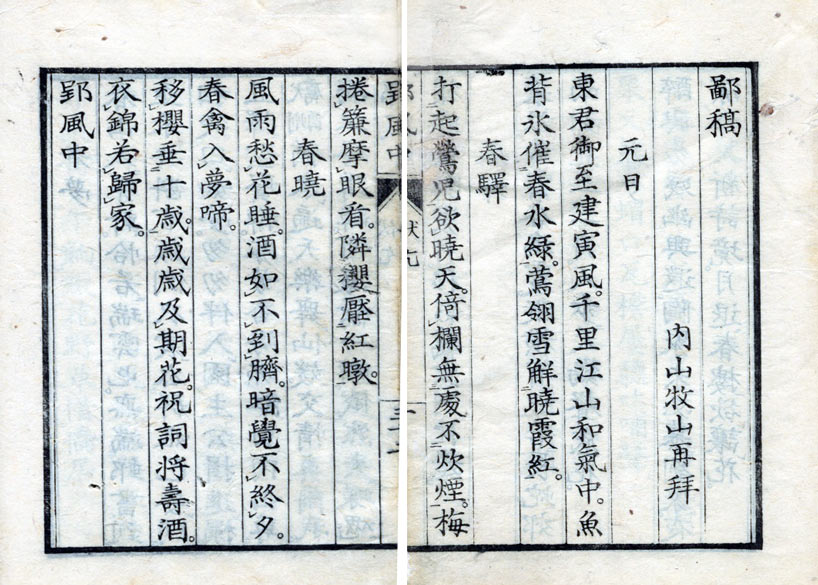 鄙稿
內山牧山再拜
元日
東君御至建寅風。千里江山和氣中。魚
背氷催春水綠。鶯翎雪解曉霞紅。
春驛
打起鶯児欲曉天。倚欄無處不炊煙。梅
郢風中
捲簾摩眼看。隣櫻壓紅暾。
春曉
風雨愁花睡。酒如不到臍。暗覺不終夕。
春禽入夢啼。
移櫻垂十歳。歳歳及期花。祝詞将壽酒。
衣錦若歸家。
郢風中